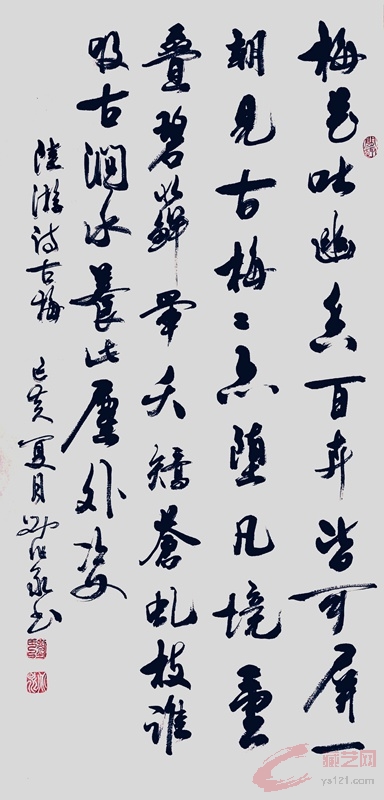 梅花吐幽香百卉皆可屏一
朝見古梅〻亦墮凡境重
疊碧蘚暈夭矯蒼虬枝誰
汲古澗水養此塵外姿
陸游诗古梅 己亥夏月书
藏艺网
ys121.com